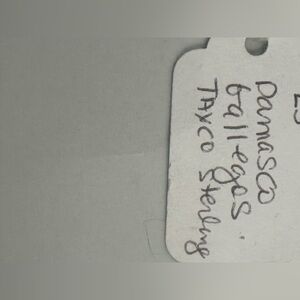 Damasco
Gallegos.
TAXCO Sterling